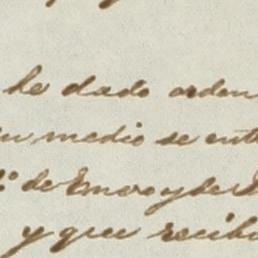 he dado orden
medio se ent
de Enero y de
y que recib